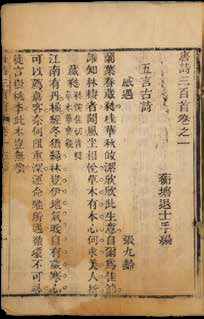 唐詩三百首卷之一
蘅塘退士手編
五言古詩
感遇　張九齡
蘭葉春葳蕤桂華秋皎潔欣欣此生意自爾為佳節
誰知林棲者聞風坐相悅草木有本心何求美人折
江南有丹橘經冬猶綠林豈伊地氣暖自有歲寒心
可以薦嘉客奈何阻重深運命惟所遇循環不可尋
徒言樹桃李此木豈無陰